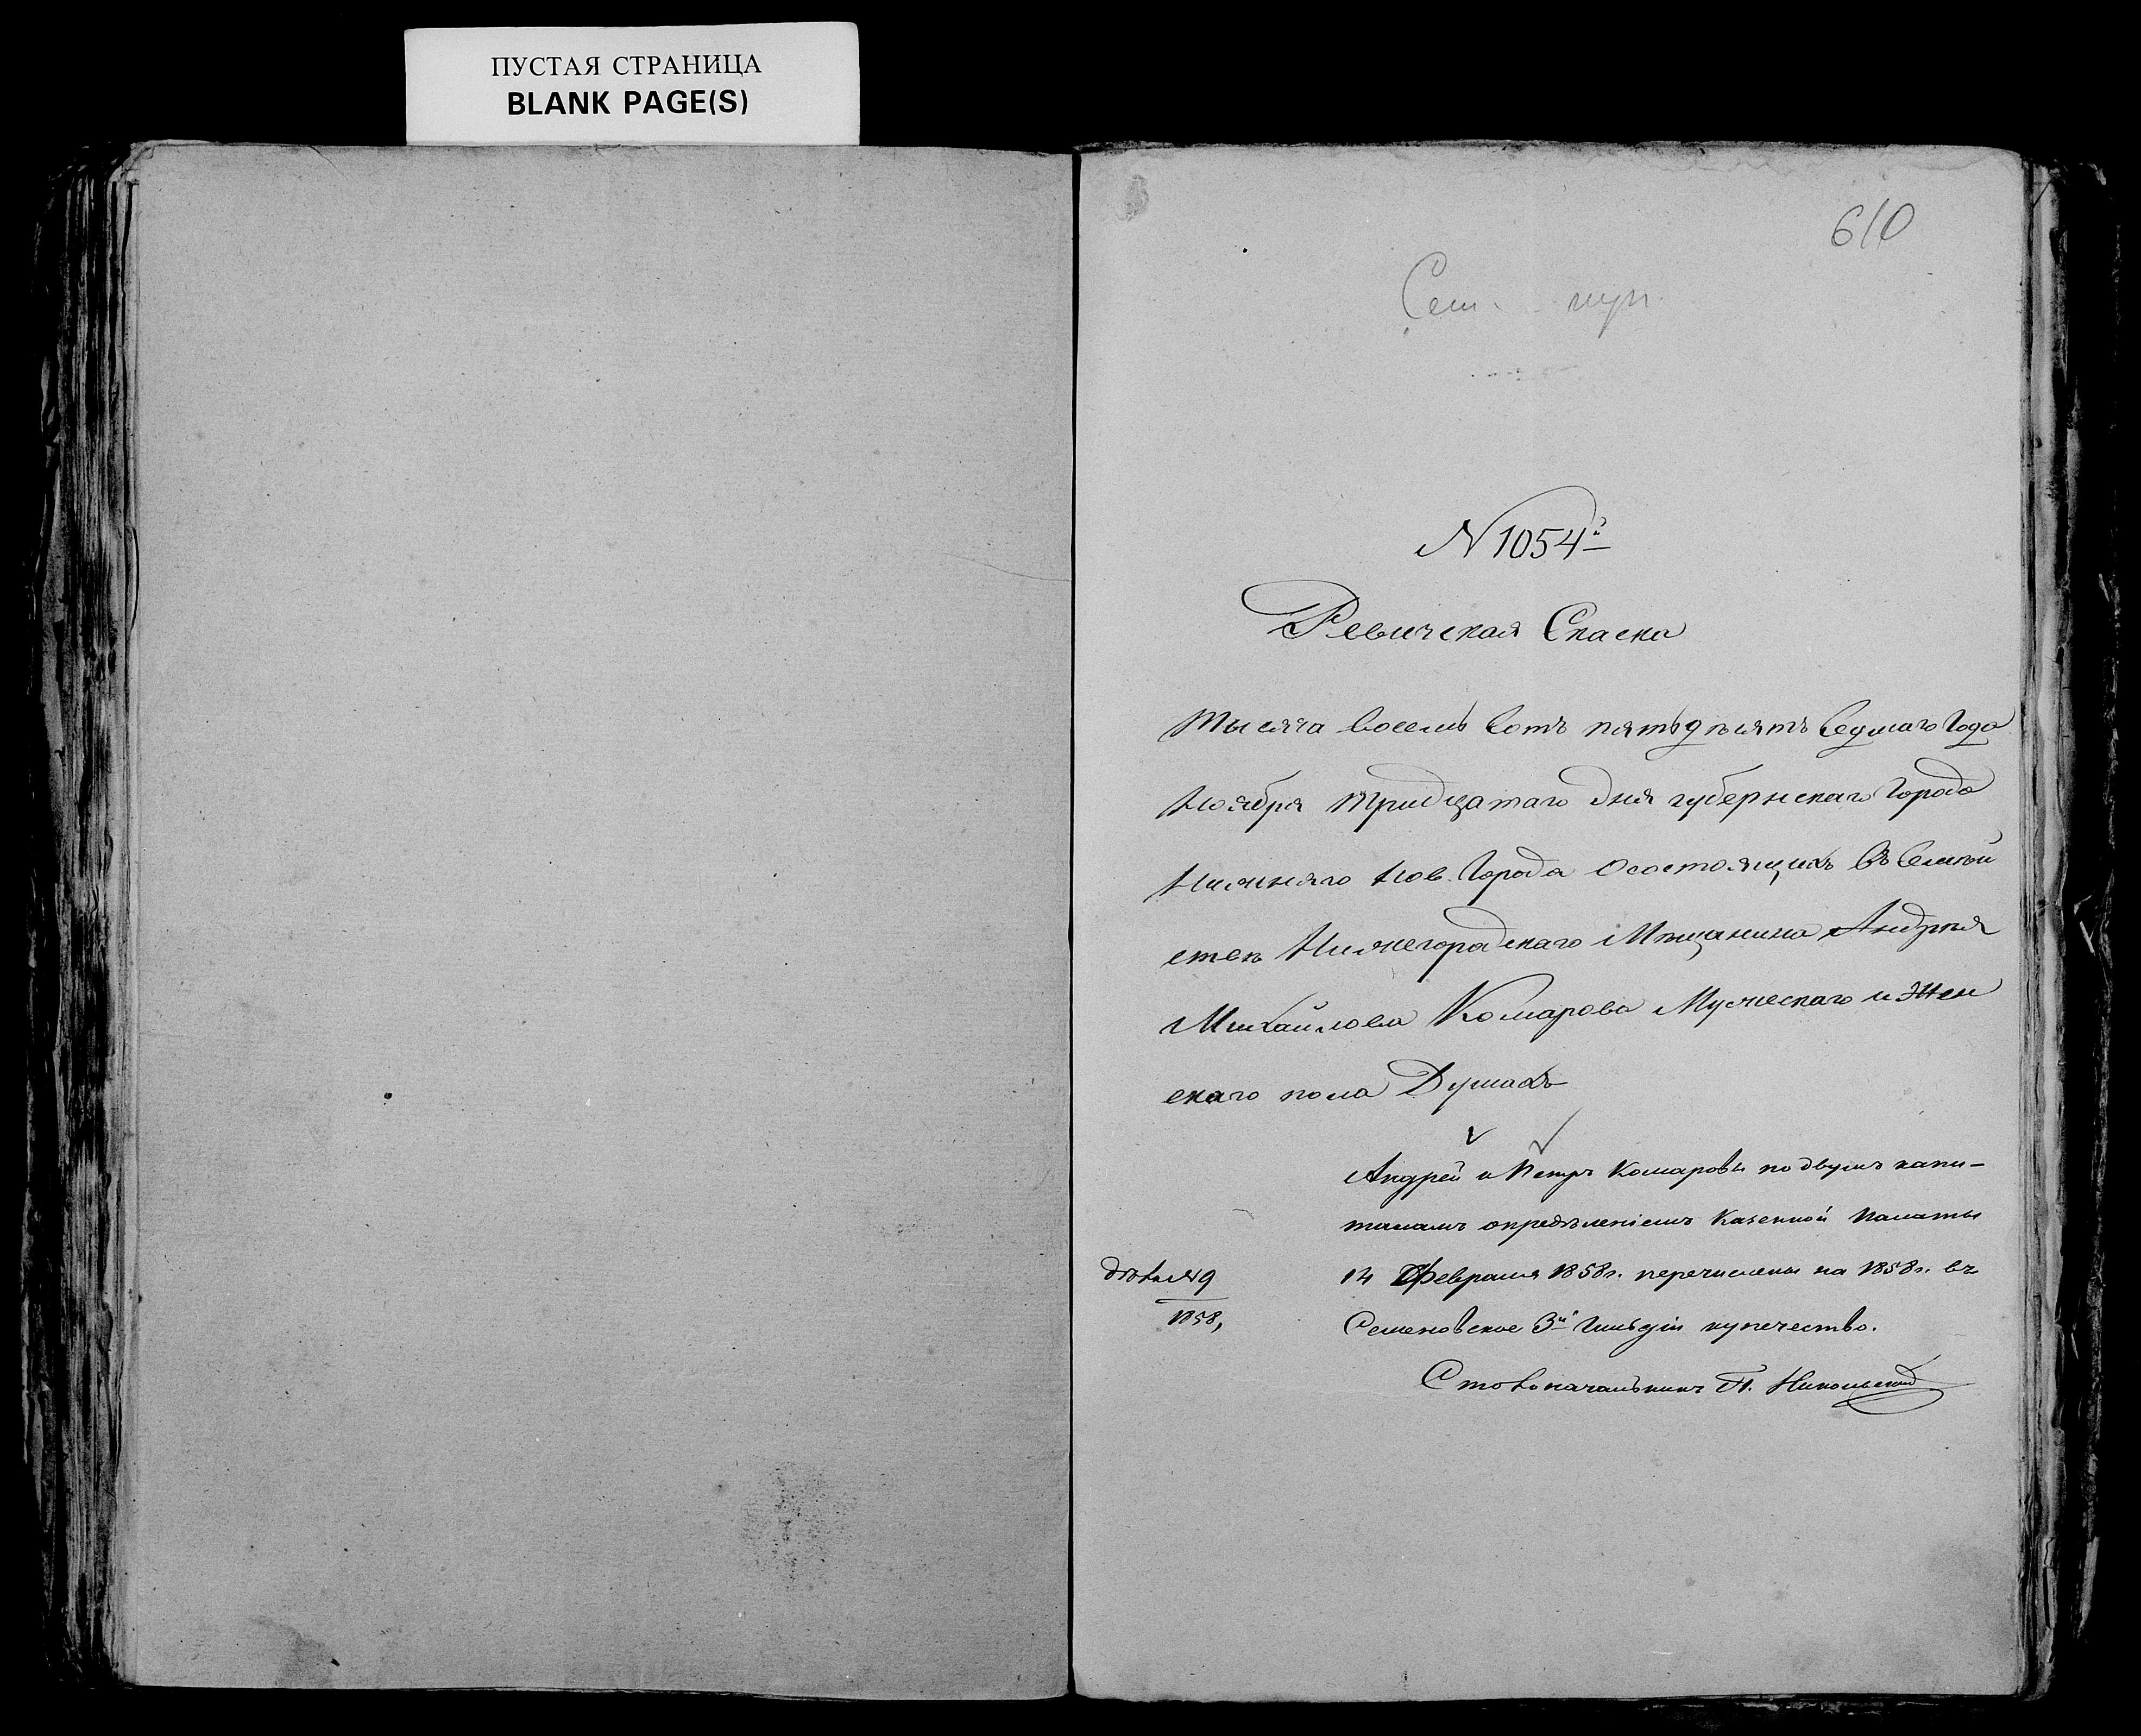 ПУСТАЯ СТРАНИЦА
BLANK PAGE(S)
610
Сем. куп.
N 1054й
Ревичская Скаска
Тысяча восемь сотъ пятьдѣсятъ седмаго Года
Ноября тридцатаго Дня губернскаго Города
Нижняго Нов. Города осостоящихъ въ Семѣй
стек Нижегородскаго Мѣщанина Андрѣя
Михайлова Комарова Мужескаго и Жен
скаго пола Душахъ
Андрей и Петръ Комаровы по двумъ капи-
таламъ опредѣленіемъ Казенной Палаты
14 Февраля 1858г. перечислены на 1858г. въ
Семеновское 3й Гильдіи купечество.
Столоначальникъ П. Никольский
дѣло № 9
1858,